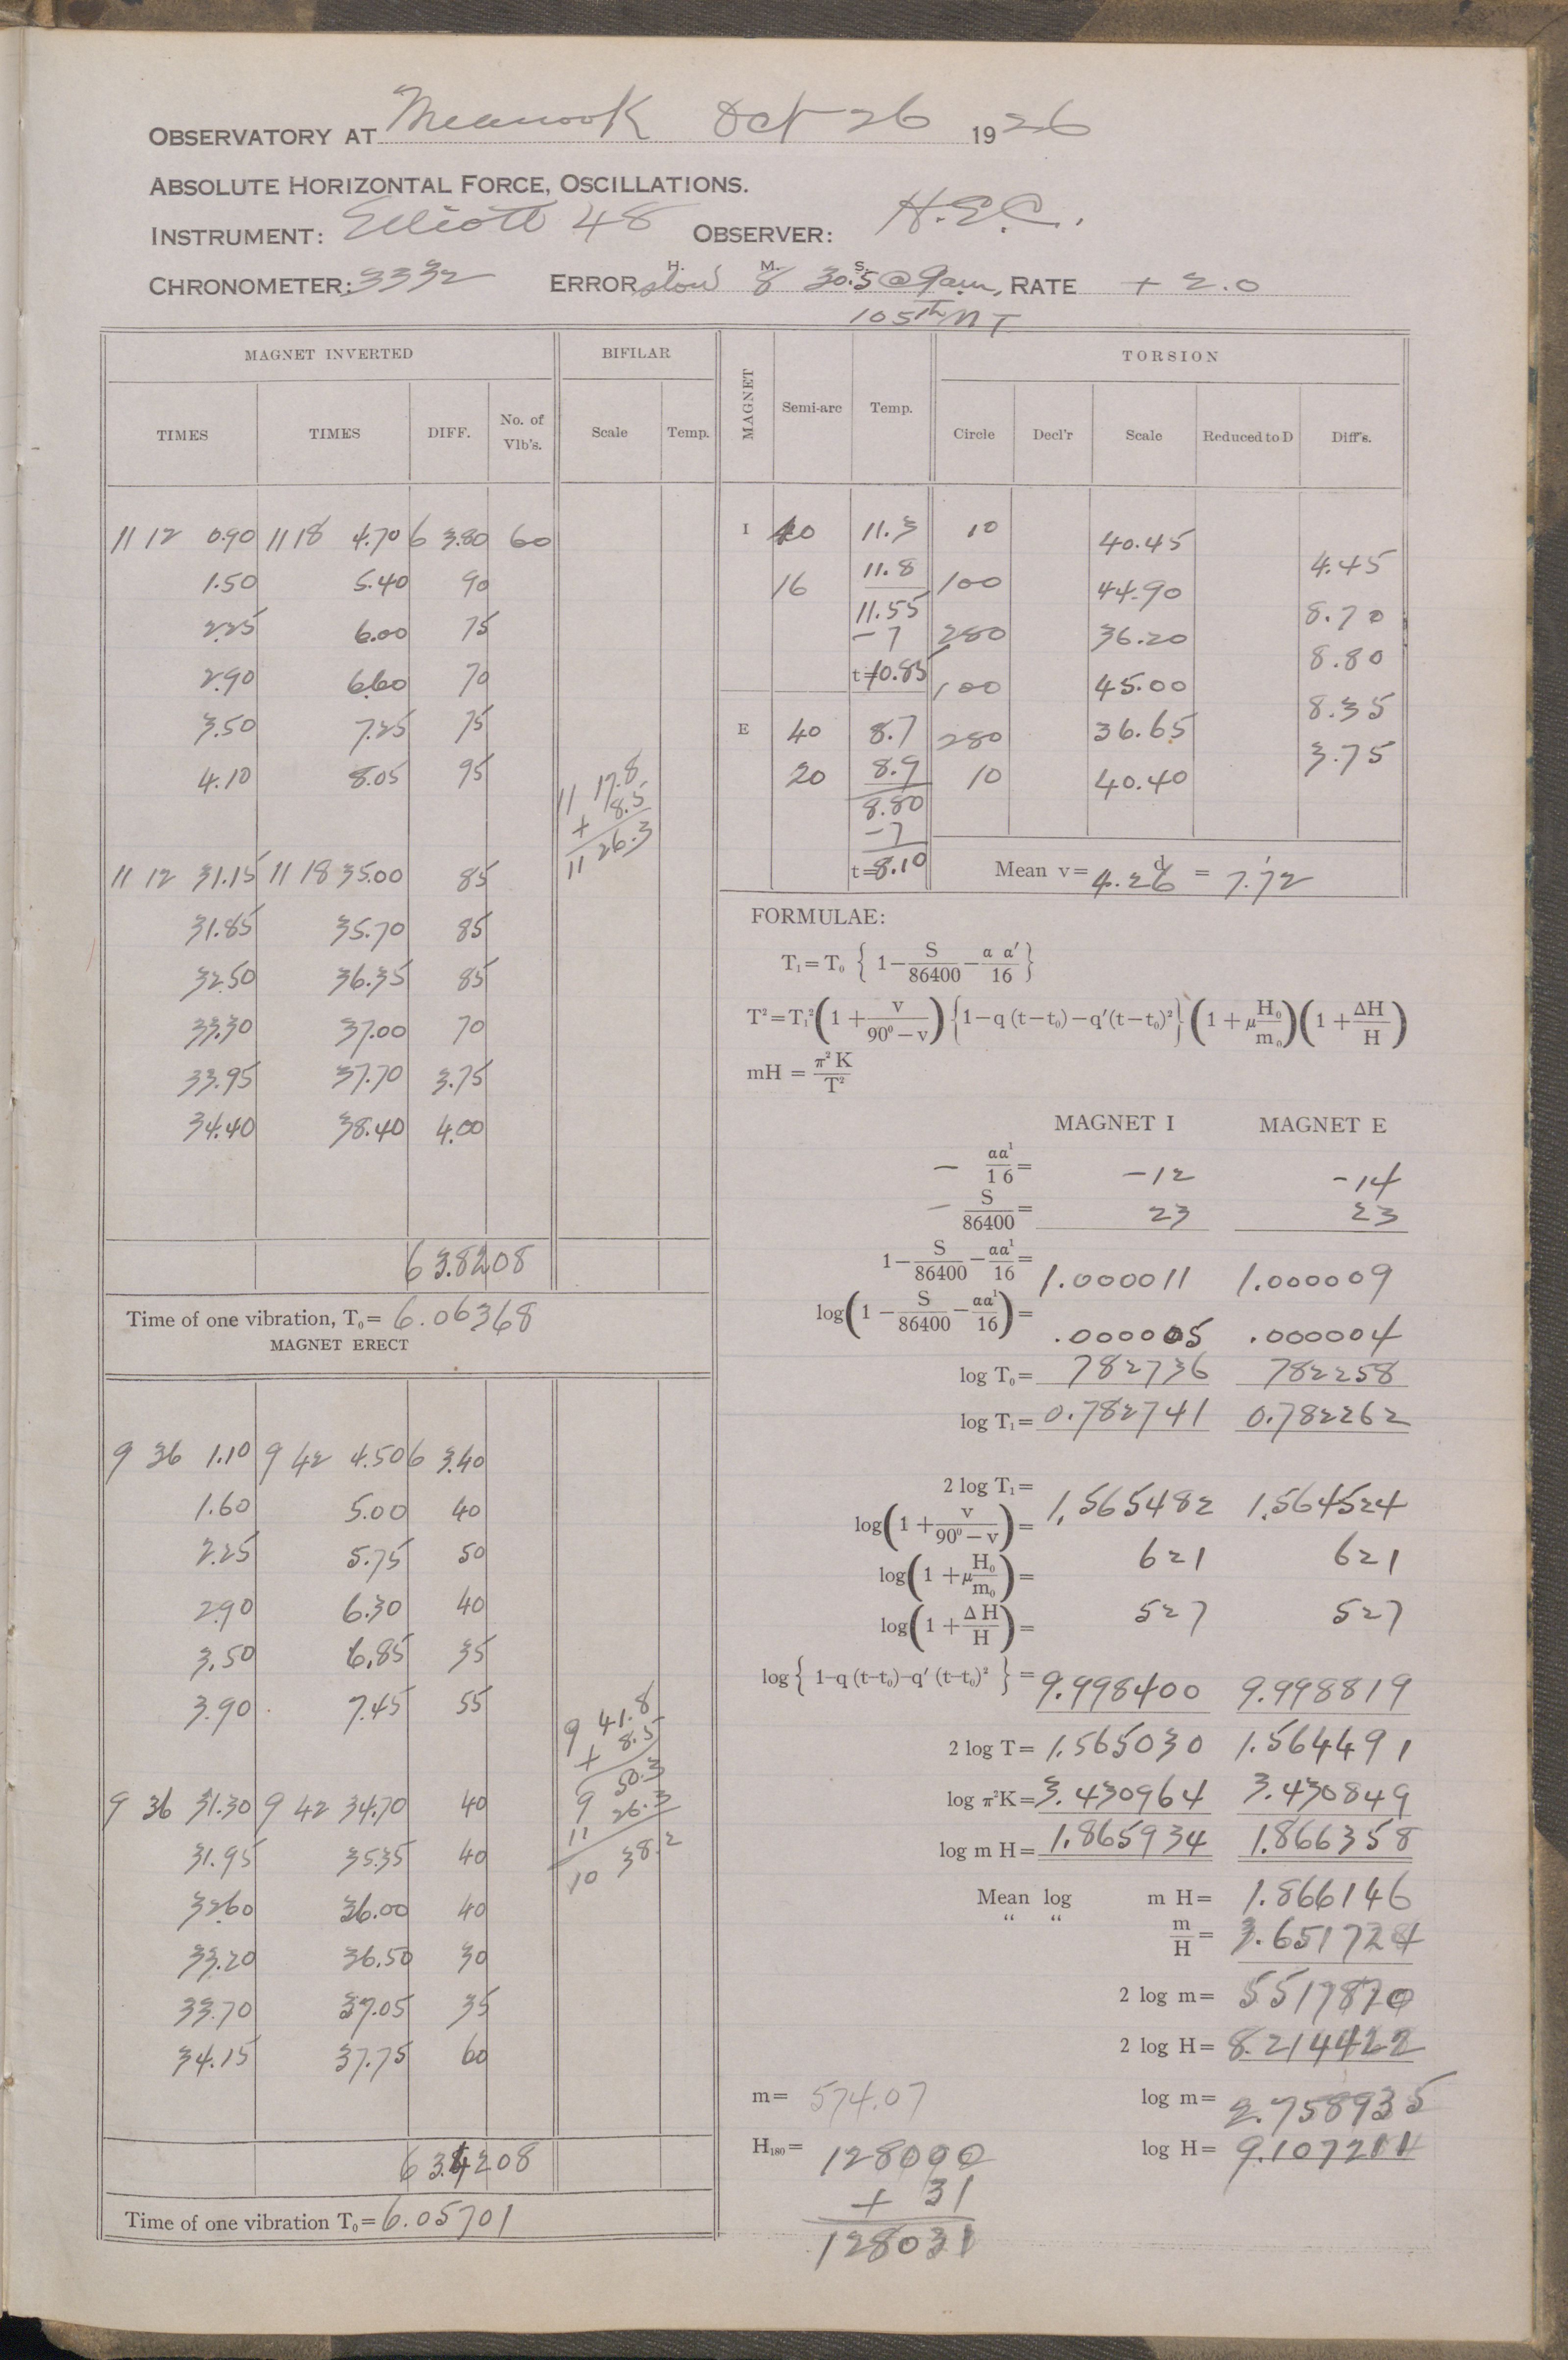 OBSERVATORY AT Meanook Oct 26 1926
ABSOLUTE HORIZONTAL FORCE, OSCILLATIONS.
INSTRUMENT: Elliott 48 OBSERVER: H.E.C.
CHRONOMETER: 3332 ERROR slow H. M. 8 S. 30.5 @ 9am, RATE + 2.0
105th MT
MAGNET INVERTED
TIMES TIMES DIFF. No. of Vib's.
BIFILAR
Scale Temp.
11 12 0.90 11 18 4.70 6 3.80 60
1.50 5.40 90
2.25 6.00 75
2.90 6.60 70
3.50 7.25 75
4.10 8.05 95
11 17.8
+ 8.5
11 26.3
11 12 31.15 11 18 35.00 85
31.85 35.70 85
32.50 36.35 85
33.30 37.00 70
33.95 37.70 3.75
34.40 38.40 4.00
6 3.8208
Time of one vibration, T₀= 6.06368
MAGNET ERECT
9 36 1.10 9 42 4.50 6 3.40
1.60 5.00 40
2.25 5.75 50
2.90 6.30 40
3.50 6.85 35
3.90 7.45 55
9 41.8
+ 8.5
9 50.3
11 26.3
10 38.2
9 36 31.30 9 42 34.70 40
31.95 35.35 40
32.60 36.00 40
33.20 36.50 30
33.70 37.05 35
34.15 37.75 60
6 3.4208
Time of one vibration T₀= 6.05701
MAGNET Semi-arc Temp.
TORSION
Circle Decl'r Scale Reduced to D Diff's.
I 40 11.3 10 40.45
4.45
16 11.8 100 44.90
11.55
8.70
-7 280 36.20
8.80
t=10.85 100 45.00
8.35
E 40 8.7 280 36.65
3.75
20 8.9 10 40.40
8.80
-7
t=8.10
Mean v= 4.26 d = 7.72 '
FORMULAE:
T₁=T₀ { 1−S/86400−a a′/16 }
T²=T₁²(1+v/90°−v){1−q (t−t₀)−q′(t−t₀)²}(1+μH₀/m₀)(1+ΔH/H)
mH = π²K/T²
MAGNET I MAGNET E
− aa¹/16= -12 -14
− S/86400= 23 23
1−S/86400−aa¹/16= 1.000011 1.000009
log(1−S/86400−aa¹/16)= .000005 .000004
log T₀= 782736 782258
log T₁= 0.782741 0.782262
2 log T₁= 1.565482 1.564524
log(1+v/90°−v)= 621 621
log(1+μH₀/m₀)= 527 527
log(1+ΔH/H)=
log{ 1−q (t−t₀)−q′ (t−t₀)² }= 9.998400 9.998819
2 log T= 1.565030 1.564491
log π²K= 3.430964 3.430849
log m H= 1.865934 1.866358
Mean log m H= 1.866146
“ “ m/H= 3.651724
2 log m= 5517870
2 log H= 8.214422
m= 574.07 log m= 2.758935
H₁₈₀= 128000 log H= 9.107211
+ 31
128031